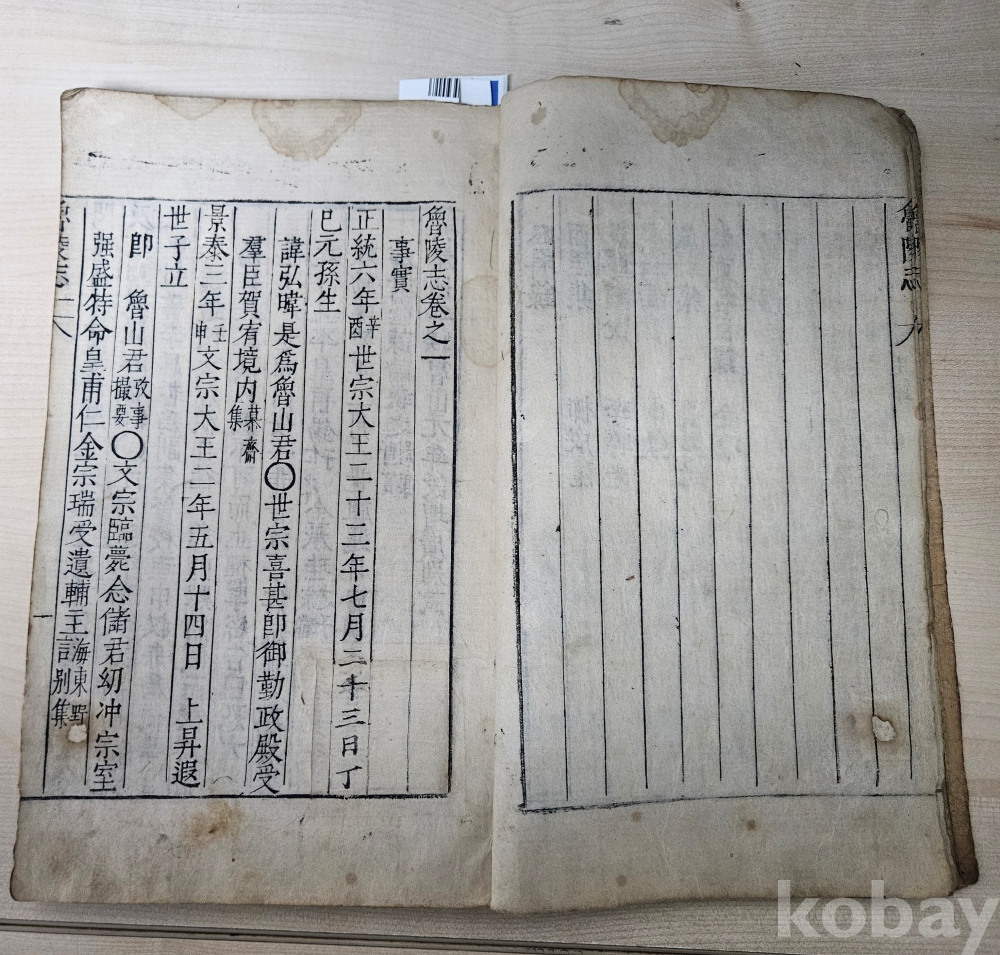 魯陵志
魯陵志卷之一
事實
正統六年辛酉世宗大王二十三年七月二十三日丁
巳元孫生
諱弘暐是爲魯山君○世宗喜甚卽御勤政殿受
羣臣賀宥境內慕齋集
景泰三年壬申文宗大王二年五月十四日 上昇遐
世子立
卽 魯山君攷事撮要○文宗臨薨念儲君幼冲宗室
强盛特命皇甫仁金宗瑞受遺輔主海東野言別集
魯陵志一
一
kobay